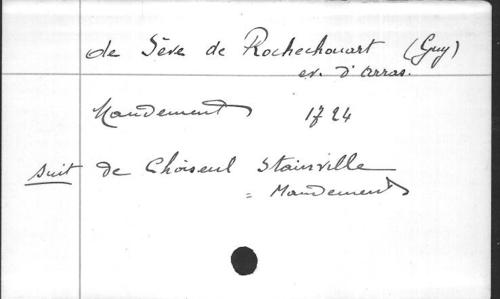 de Sève de Rochechouart (Guy)
ev. d'Arras.
Mandement 1724
suit de Choiseul Stainville
= Mandement